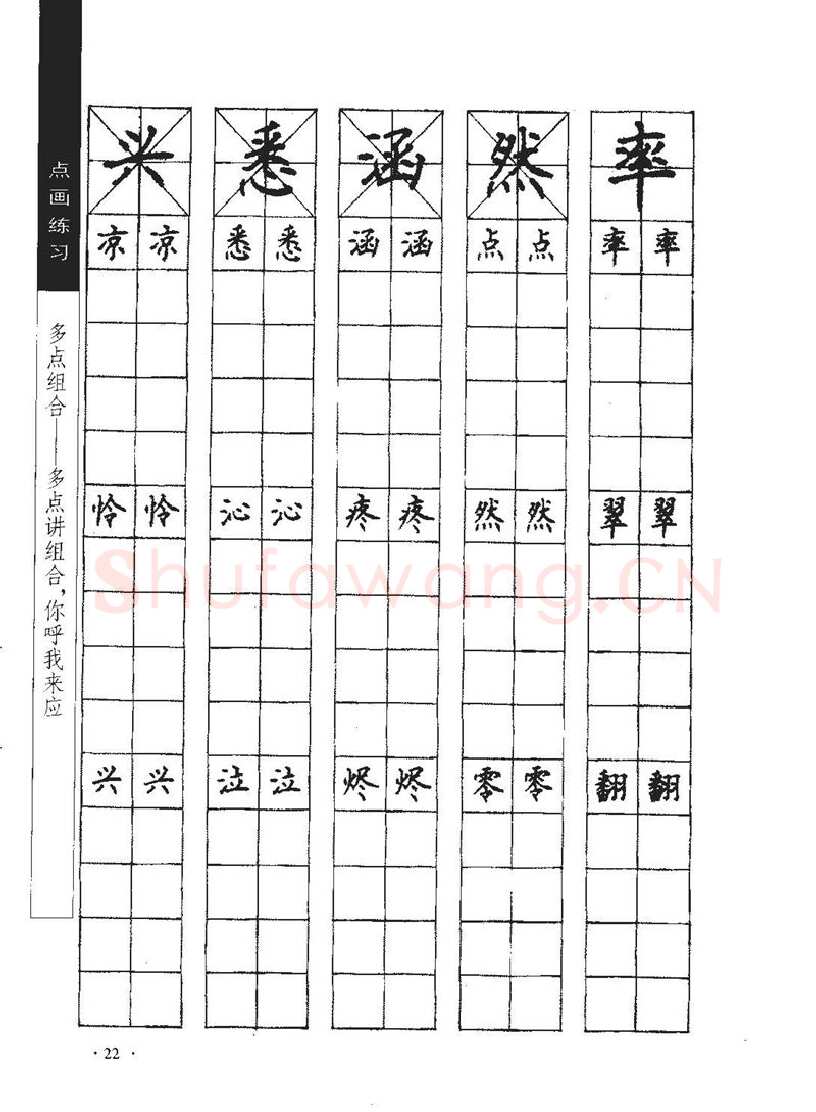 点画练习
多点组合——多点讲组合，你呼我来应
兴 悉 涵 然 率
凉 凉 悉 悉 涵 涵 点 点 率 率
怜 怜 沁 沁 疼 疼 然 然 翠 翠
兴 兴 泣 泣 烬 烬 零 零 翻 翻
Shufawang.CN
·22·